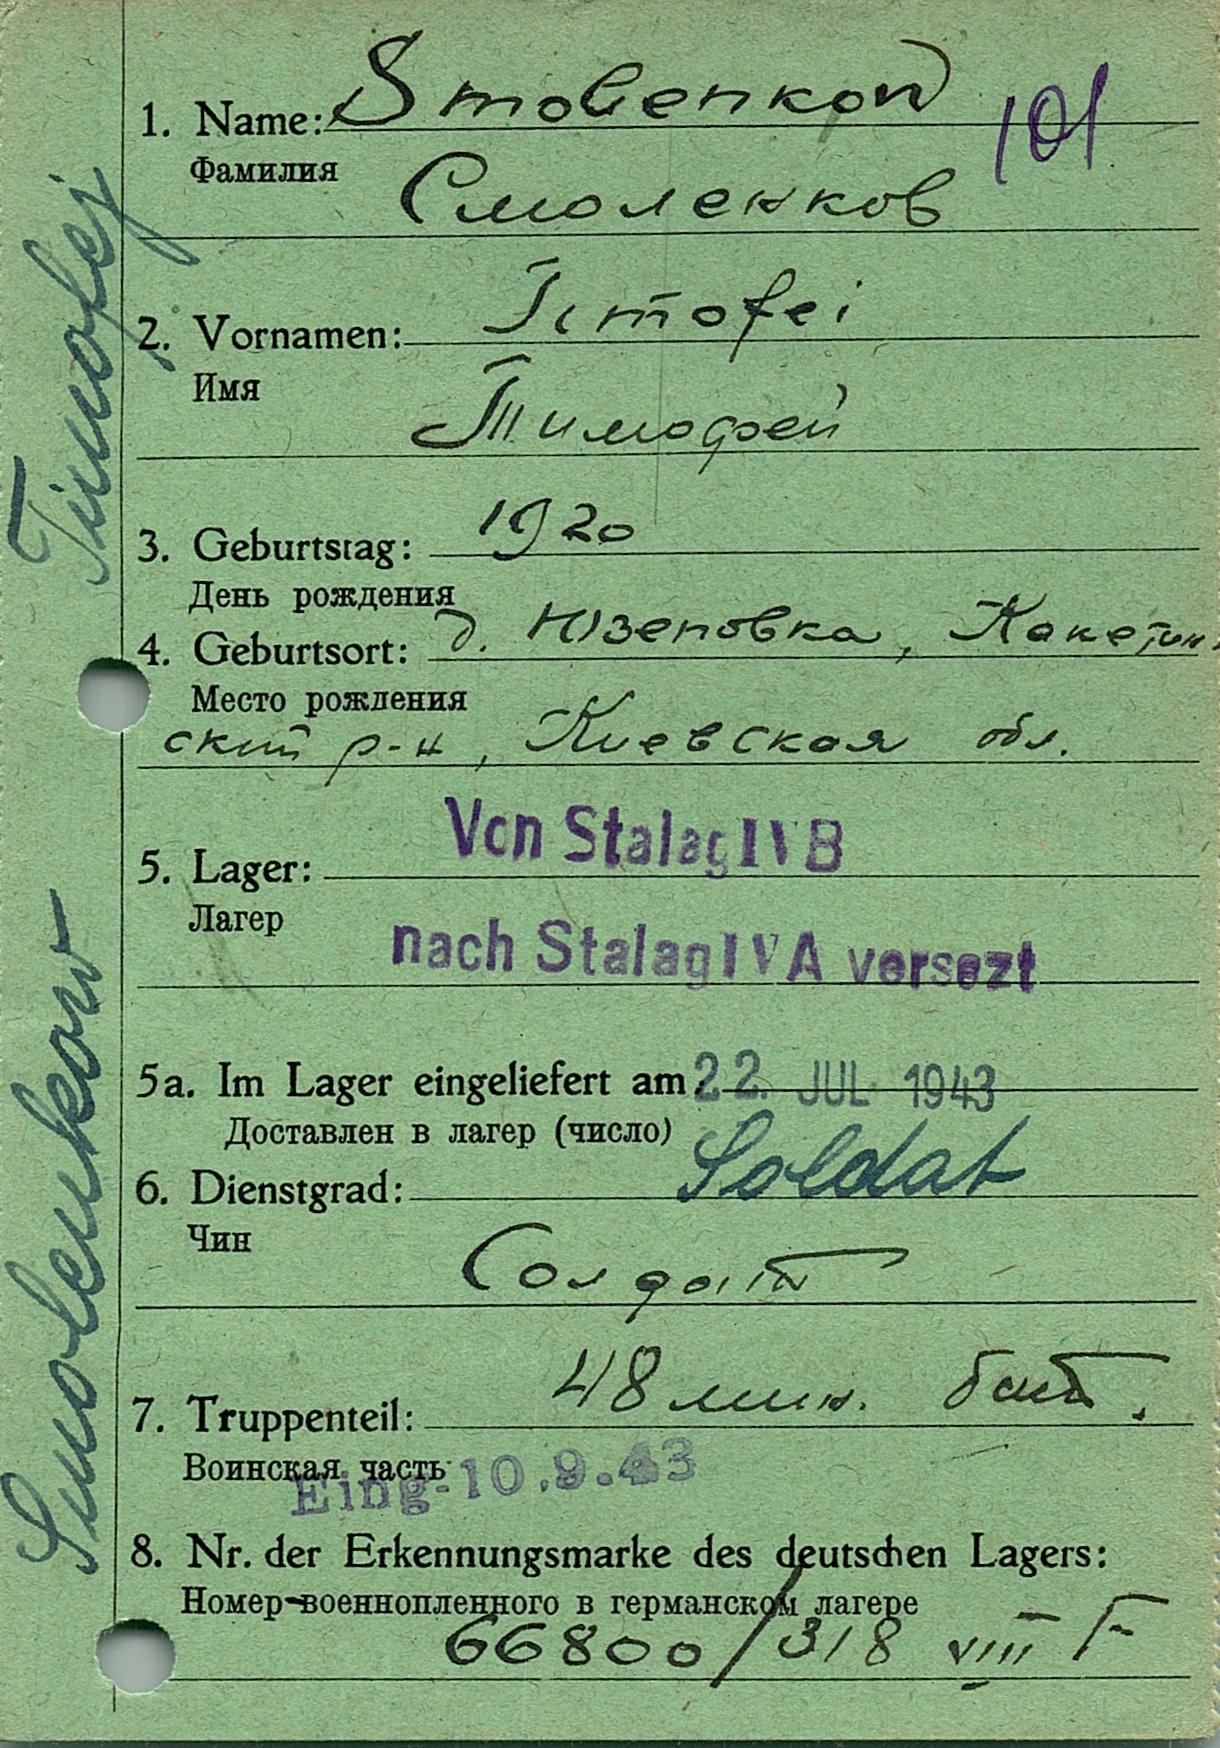 1. Name: Smolenkow
101
Фамилия
Смоленков
2. Vornamen: Timofei
Имя
Тимофей
3. Geburtstag: 1920
День рождения
4. Geburtsort: д. Юзеповка,
Место рождения
ский р-н, Киевская обл.
Von Stalag IV B
5. Lager:
Лагер
nach Stalag IV A versezt
5a. Im Lager eingeliefert am 22. JUL 1943
Доставлен в лагер (число)
6. Dienstgrad: Soldat
Чин
Солдат
7. Truppenteil: 48 мин. бат.
Воинская часть
Eing. 10.9.43
8. Nr. der Erkennungsmarke des deutschen Lagers:
Номер военнопленного в германском лагере
66800/318 VIII F
Smolenkow Timofej